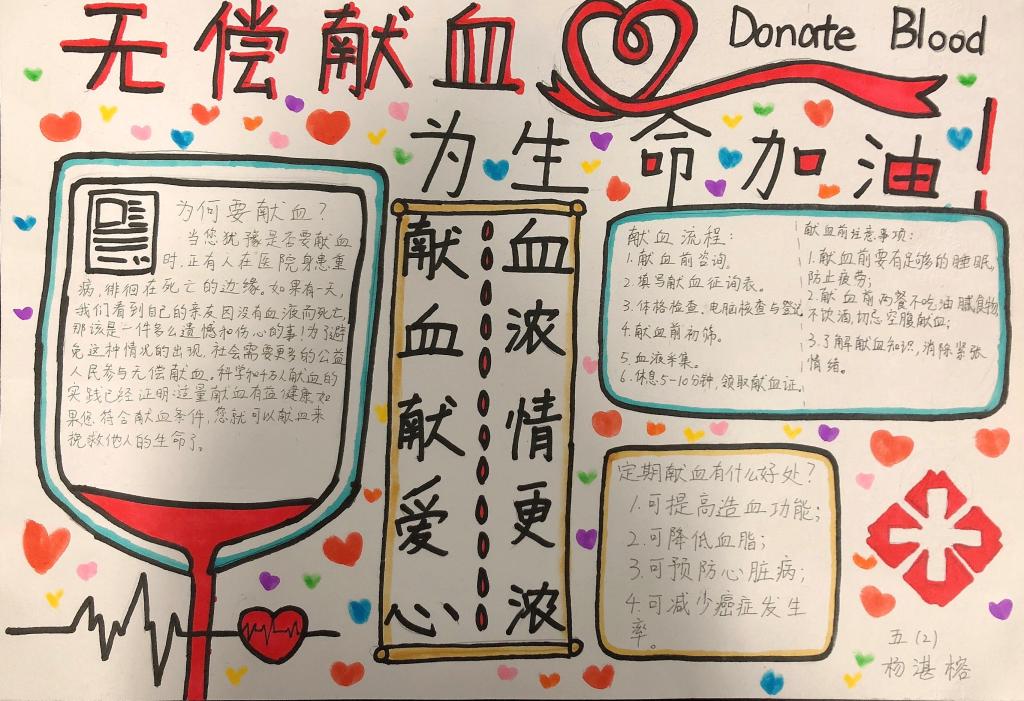 无偿献血
Donate Blood
为生命加油!
为何要献血?
当您犹豫是否要献血
时,正有人在医院身患重
病,徘徊在死亡的边缘。如果有一天,
我们看到自己的亲友因没有血液而死亡,
那该是一件多么遗憾和伤心的事!为了避
免这种情况的出现,社会需要更多的公益
人民参与无偿献血。科学和千万人献血的
实践已经证明:适量献血有益健康,如
果您符合献血条件,您就可以献血来
挽救他人的生命了。
献血献爱心
血浓情更浓
献血流程:
1.献血前咨询。
2.填写献血征询表。
3.体格检查、电脑核查与登记
4.献血前初筛。
5.血液采集。
6.休息5-10分钟,领取献血证。
献血前注意事项:
1.献血前要有足够的睡眠,
防止疲劳;
2.献血前两餐不吃油腻食物,
不饮酒,切忌空腹献血;
3.了解献血知识,消除紧张
情绪。
定期献血有什么好处?
1.可提高造血功能;
2.可降低血脂;
3.可预防心脏病;
4.可减少癌症发生
率。
五(2)
杨湛榕